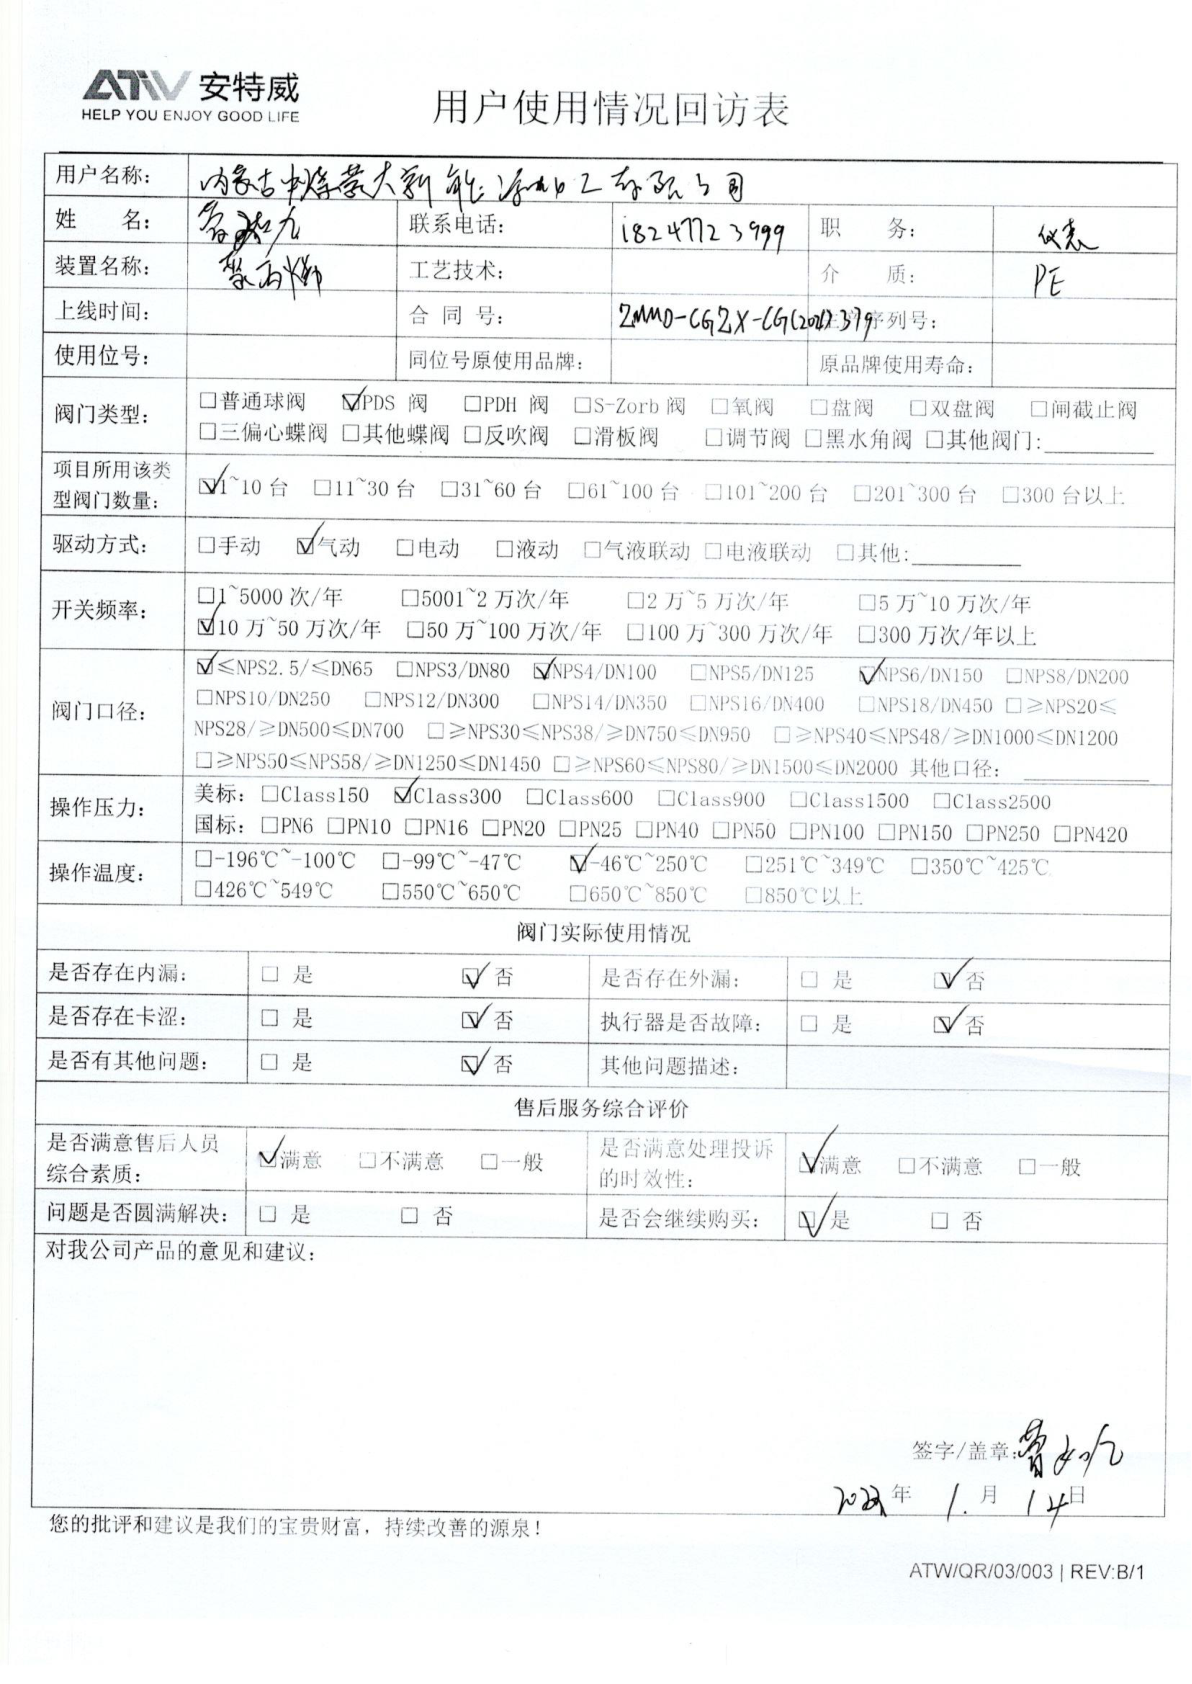 ATW 安特威
HELP YOU ENJOY GOOD LIFE
用户使用情况回访表
用户名称： 内蒙古中煤蒙大新能源化工有限公司
姓 名： 联系电话： 18247723999 职 务： 仪表
装置名称： 工艺技术： 介 质： PE
上线时间： 合 同 号： ZMMD-CGZX-CG 379 生产序列号：
使用位号： 同位号原使用品牌： 原品牌使用寿命：
阀门类型： □普通球阀 ☑PDS 阀 □PDH 阀 □S-Zorb 阀 □氧阀 □盘阀 □双盘阀 □闸截止阀
□三偏心蝶阀 □其他蝶阀 □反吹阀 □滑板阀 □调节阀 □黑水角阀 □其他阀门：
项目所用该类
型阀门数量： ☑1~10 台 □11~30 台 □31~60 台 □61~100 台 □101~200 台 □201~300 台 □300 台以上
驱动方式： □手动 ☑气动 □电动 □液动 □气液联动 □电液联动 □其他：
开关频率： □1~5000 次/年 □5001~2 万次/年 □2 万~5 万次/年 □5 万~10 万次/年
☑10 万~50 万次/年 □50 万~100 万次/年 □100 万~300 万次/年 □300 万次/年以上
阀门口径： ☑≤NPS2.5/≤DN65 □NPS3/DN80 ☑NPS4/DN100 □NPS5/DN125 ☑NPS6/DN150 □NPS8/DN200
□NPS10/DN250 □NPS12/DN300 □NPS14/DN350 □NPS16/DN400 □NPS18/DN450 □≥NPS20≤
NPS28/≥DN500≤DN700 □≥NPS30≤NPS38/≥DN750≤DN950 □≥NPS40≤NPS48/≥DN1000≤DN1200
□≥NPS50≤NPS58/≥DN1250≤DN1450 □≥NPS60≤NPS80/≥DN1500≤DN2000 其他口径：
操作压力： 美标：□Class150 ☑Class300 □Class600 □Class900 □Class1500 □Class2500
国标：□PN6 □PN10 □PN16 □PN20 □PN25 □PN40 □PN50 □PN100 □PN150 □PN250 □PN420
操作温度： □-196℃~-100℃ □-99℃~-47℃ ☑-46℃~250℃ □251℃~349℃ □350℃~425℃
□426℃~549℃ □550℃~650℃ □650℃~850℃ □850℃以上
阀门实际使用情况
是否存在内漏： □ 是 ☑ 否 是否存在外漏： □ 是 ☑ 否
是否存在卡涩： □ 是 ☑ 否 执行器是否故障： □ 是 ☑ 否
是否有其他问题： □ 是 ☑ 否 其他问题描述：
售后服务综合评价
是否满意售后人员
综合素质： ☑满意 □不满意 □一般 是否满意处理投诉
的时效性： ☑满意 □不满意 □一般
问题是否圆满解决： □ 是 □ 否 是否会继续购买： ☑是 □ 否
对我公司产品的意见和建议：
签字/盖章：
年 1 月 14 日
您的批评和建议是我们的宝贵财富，持续改善的源泉！
ATW/QR/03/003 | REV:B/1